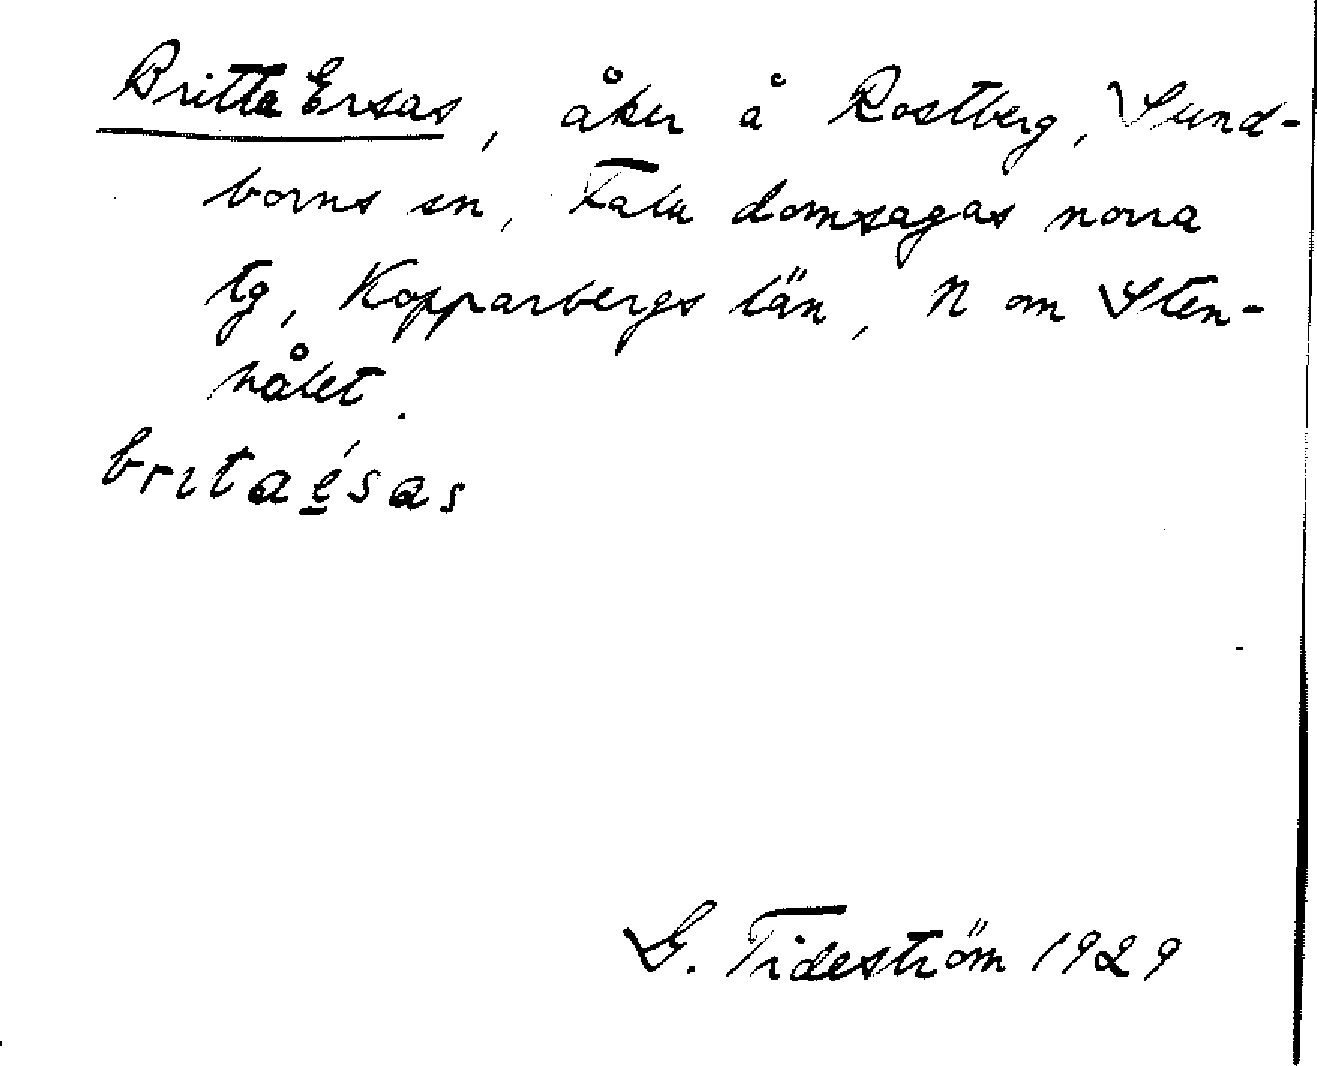 Britta Ersas, åker å Rostberg, Sund-
borns sn, Falu domsagas norra
tg, Kopparbergs län, N om Sten-
hålet.
britaésas
G. Tideström 1929